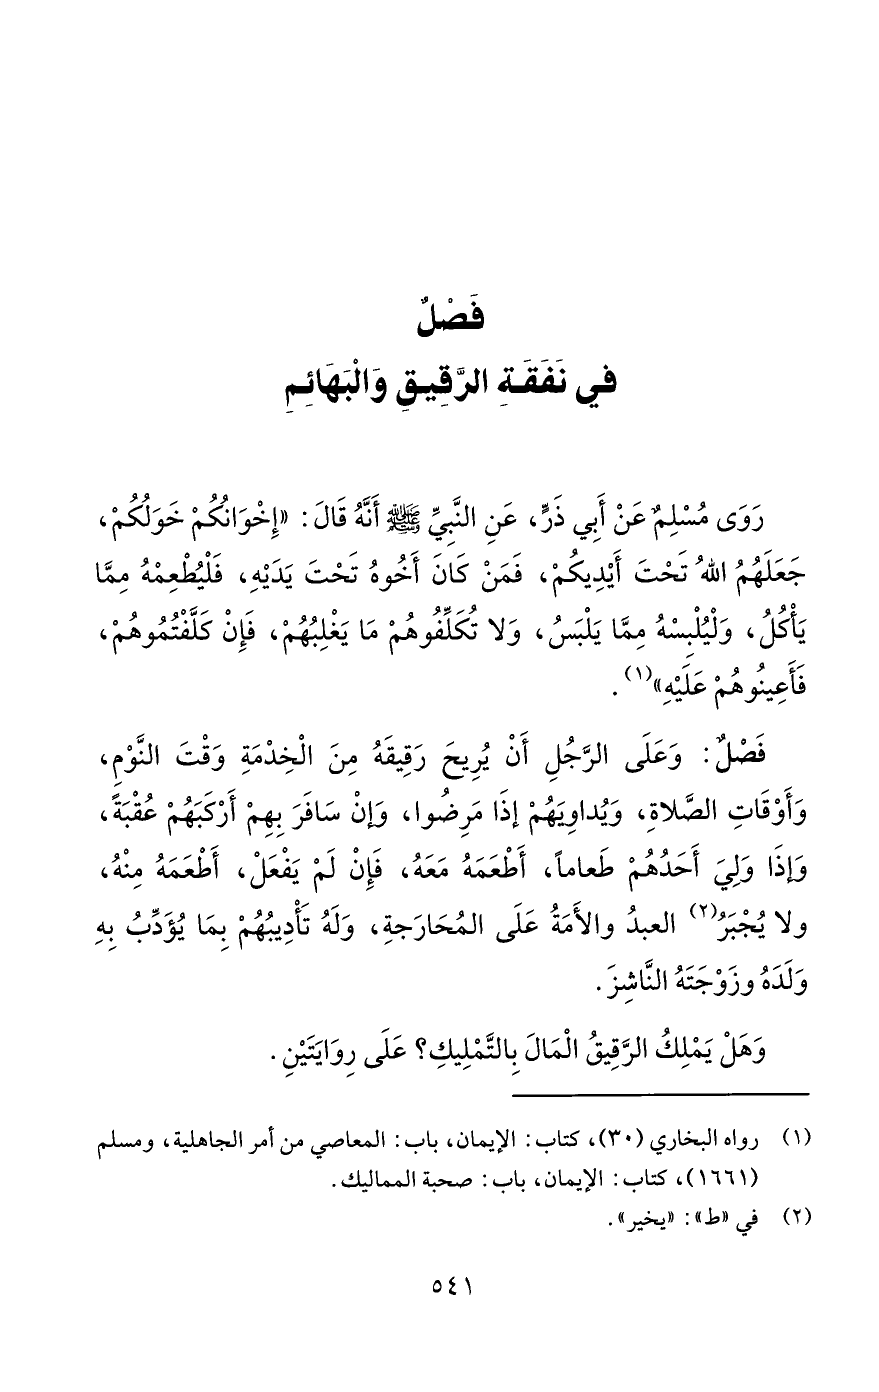 فَصْلٌ
في نَفَقَةِ الرَّقِيقِ وَالْبَهَائِمِ
رَوَى مُسْلِمٌ عَنْ أَبِي ذَرٍّ، عَنِ النَّبِيِّ ﷺ أَنَّهُ قَالَ: «إِخْوَانُكُمْ خَوَلُكُمْ،
جَعَلَهُمُ اللهُ تَحْتَ أَيْدِيكُمْ، فَمَنْ كَانَ أَخُوهُ تَحْتَ يَدَيْهِ، فَلْيُطْعِمْهُ مِمَّا
يَأْكُلُ، وَلْيُلْبِسْهُ مِمَّا يَلْبَسُ، وَلا تُكَلِّفُوهُمْ مَا يَغْلِبُهُمْ، فَإِنْ كَلَّفْتُمُوهُمْ،
فَأَعِينُوهُمْ عَلَيْهِ»(١).
فَصْلٌ: وَعَلَى الرَّجُلِ أَنْ يُرِيحَ رَقِيقَهُ مِنَ الْخِدْمَةِ وَقْتَ النَّوْمِ،
وَأَوْقَاتِ الصَّلاةِ، وَيُداوِيَهُمْ إذَا مَرِضُوا، وَإنْ سَافَرَ بِهِمْ أَرْكَبَهُمْ عُقْبَةً،
وَإذَا وَلِيَ أَحَدُهُمْ طَعاماً، أَطْعَمَهُ مَعَهُ، فَإِنْ لَمْ يَفْعَلْ، أَطْعَمَهُ مِنْهُ،
ولا يُجْبَرُ(٢) العبدُ والأَمَةُ عَلَى المُخَارَجةِ، وَلَهُ تَأْدِيبُهُمْ بِمَا يُؤَدِّبُ بِهِ
وَلَدَهُ وزَوْجَتَهُ النَّاشِزَ.
وَهَلْ يَمْلِكُ الرَّقِيقُ الْمَالَ بِالتَّمْلِيكِ؟ عَلَى رِوَايَتَيْنِ.
(١) رواه البخاري (٣٠)، كتاب: الإيمان، باب: المعاصي من أمر الجاهلية، ومسلم
(١٦٦١)، كتاب: الإيمان، باب: صحبة المماليك.
(٢) في «ط»: «يخير».
٥٤١